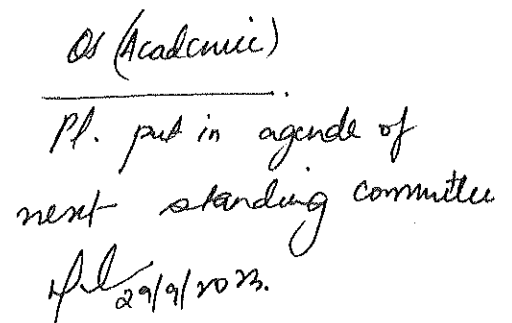 OS (Academic)
Pl. put in agenda of
next standing committee
29/9/2023.